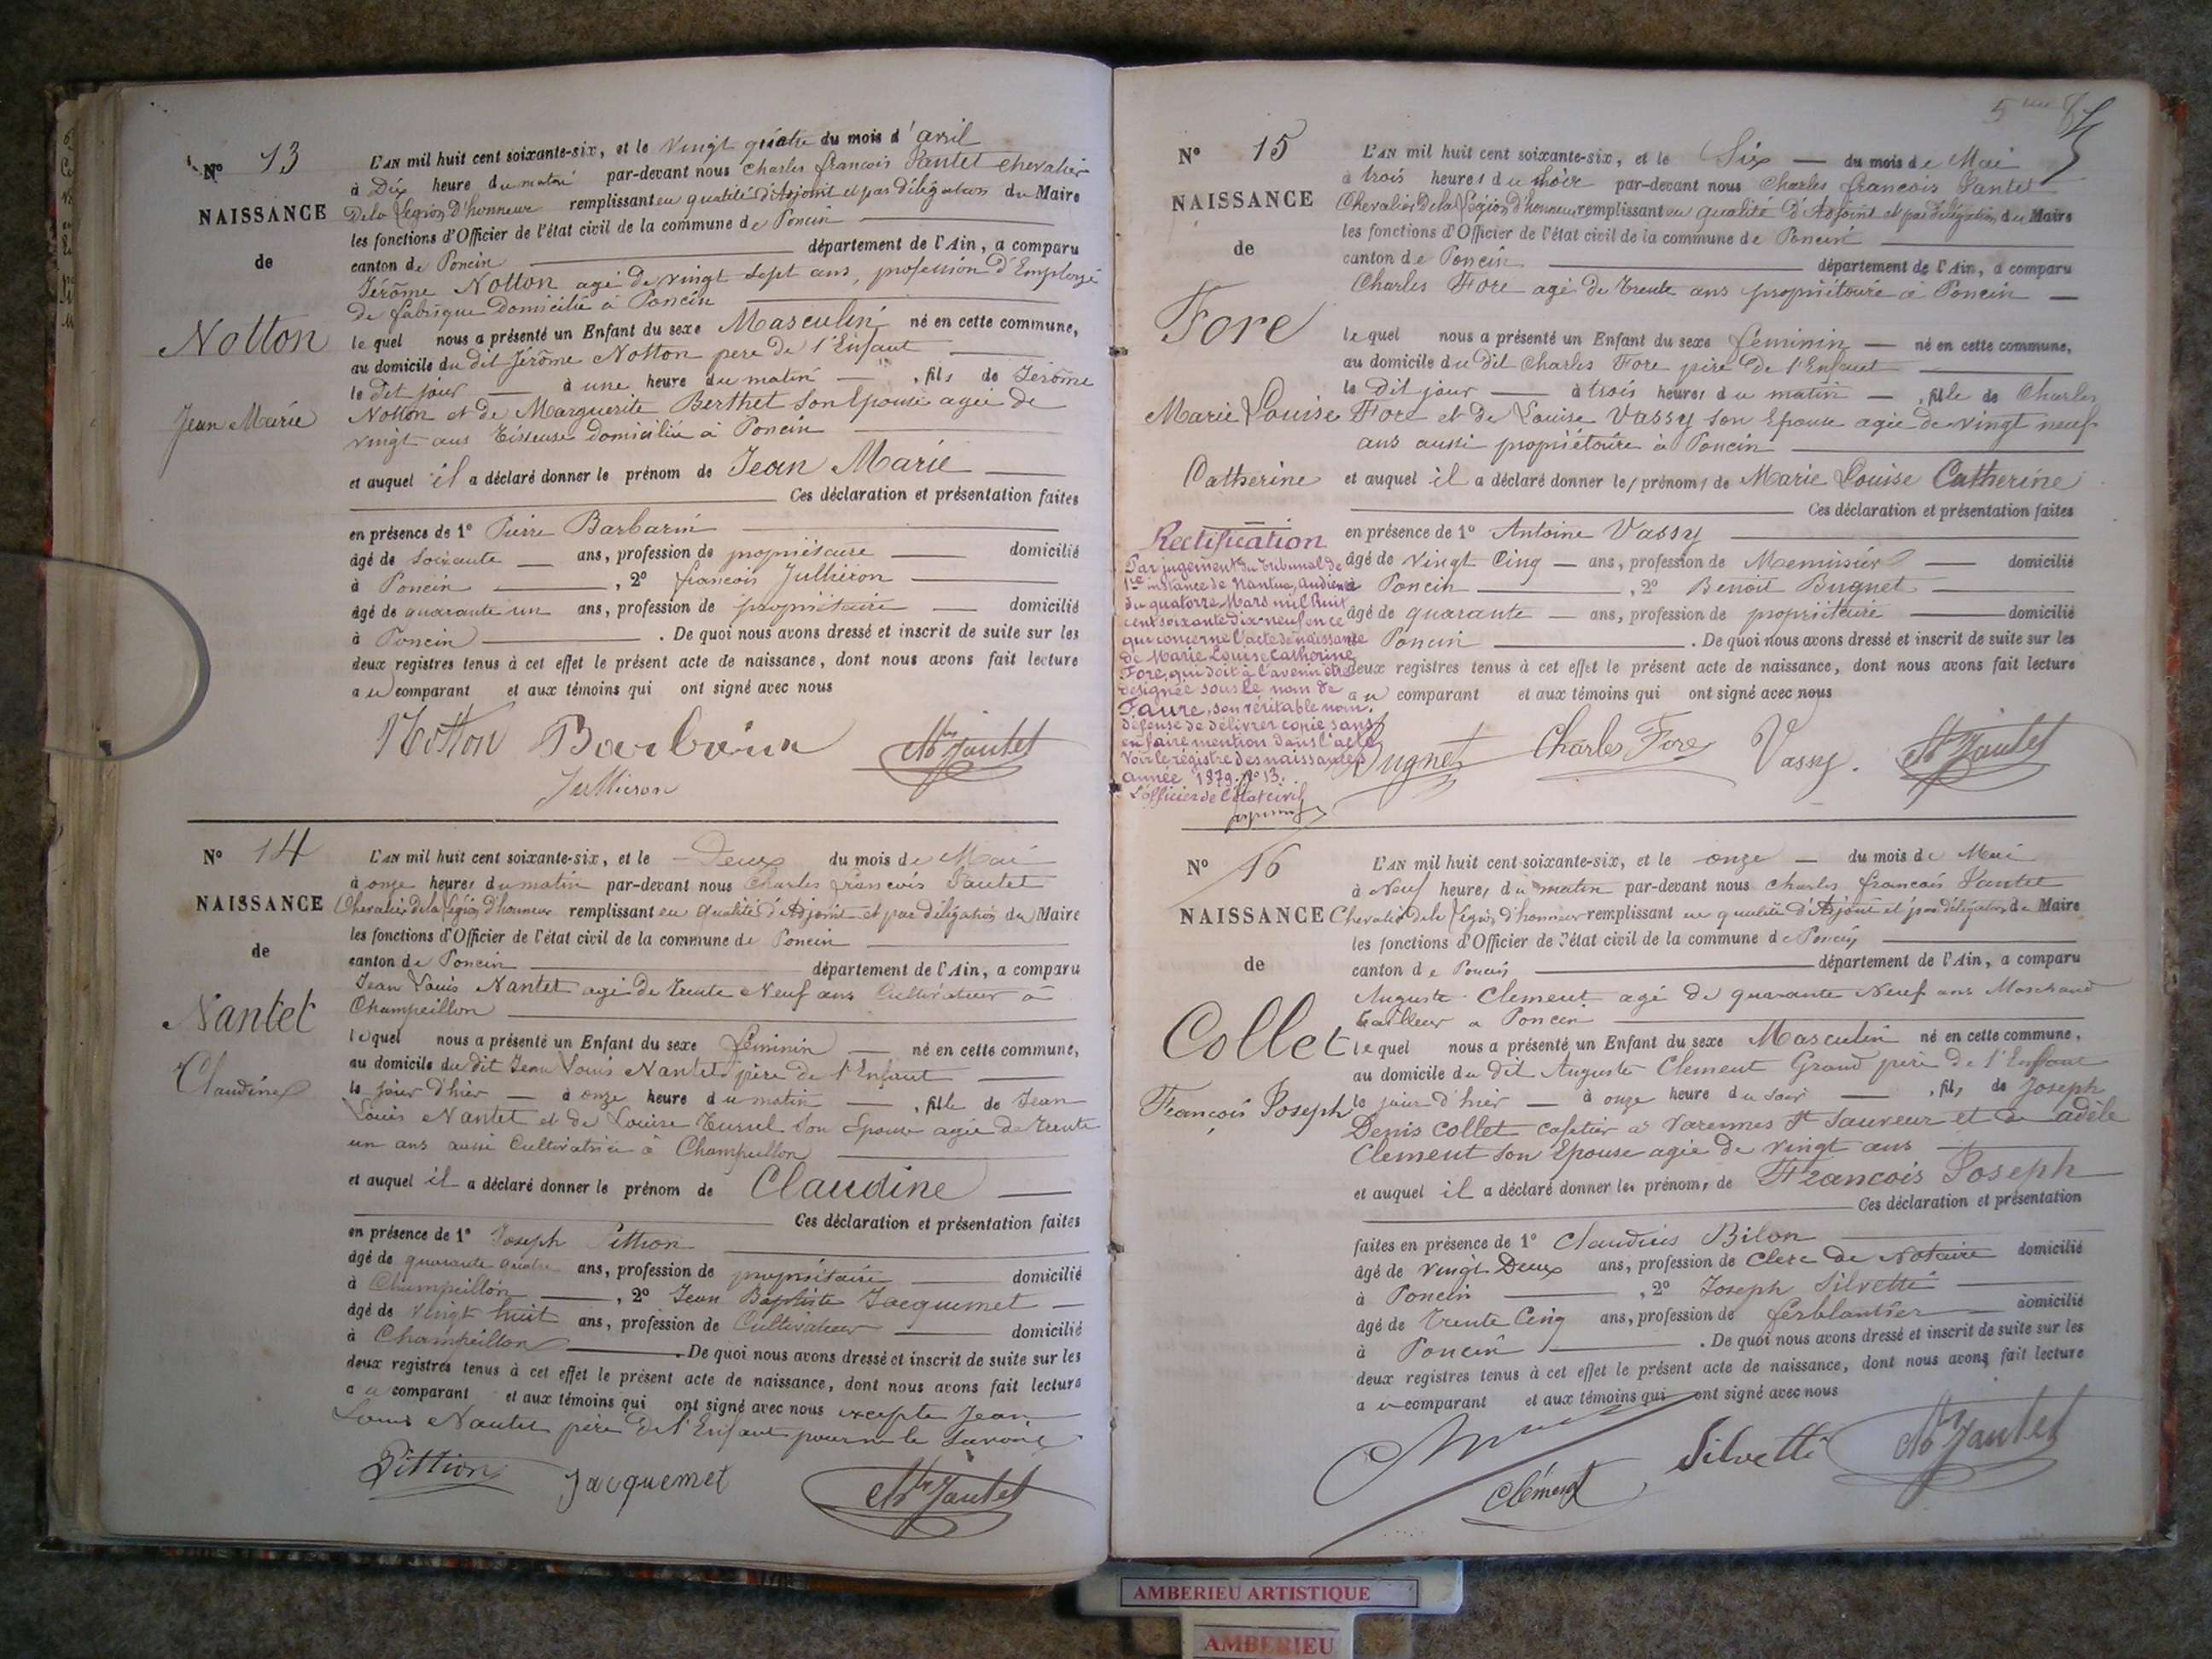 N° 13
NAISSANCE
de
Notton
Jean Marie
L'AN mil huit cent soixante-six, et le vingt quatre du mois d'avril
à Dix heure du matin par-devant nous Charles françois Jantet chevalier
De la Légion D'honneur remplissant en qualité d'Adjoint et par délégation du Maire
les fonctions d'Officier de l'état civil de la commune de Poncin
canton de Poncin département de l'Ain, a comparu
Jérôme Notton agé de vingt sept ans, profession d'Employé
de fabrique Domicilié à Poncin
lequel nous a présenté un Enfant du sexe Masculin né en cette commune,
au domicile du dit Jérôme Notton pere De l'Enfant
le dit jour à une heure du matin, fils de Jérôme
Notton et de Marguerite Berthet son Epouse agée de
vingt ans Tisseuse domiciliée à Poncin
et auquel il a déclaré donner le prénom de Jean Marie
Ces déclaration et présentation faites
en présence de 1° Pierre Barbarin
âgé de soixante ans, profession de propriétaire domicilié
à Poncin, 2° françois Jullieron
âgé de quarante un ans, profession de propriétaire domicilié
à Poncin. De quoi nous avons dressé et inscrit de suite sur les
deux registres tenus à cet effet le présent acte de naissance, dont nous avons fait lecture
au comparant et aux témoins qui ont signé avec nous
Notton Barbarin Jantet
Jullieron
N° 14
NAISSANCE
de
Nantet
Claudine
L'AN mil huit cent soixante-six, et le Deux du mois de Mai
à onze heures du matin par-devant nous Charles françois Jantet
Chevalier de la Légion d'honneur remplissant en qualité d'Adjoint et par délégation du Maire
les fonctions d'Officier de l'état civil de la commune de Poncin
canton de Poncin département de l'Ain, a comparu
Jean Louis Nantet agé de trente Neuf ans Cultivateur à
Champeillon
lequel nous a présenté un Enfant du sexe féminin né en cette commune,
au domicile du dit Jean Louis Nantet père de l'Enfant
le jour d'hier à onze heure du matin, fille de Jean
Louis Nantet et de Louise son Epouse agée de trente
un ans aussi Cultivatrice à Champeillon
et auquel il a déclaré donner le prénom de Claudine
Ces déclaration et présentation faites
en présence de 1° Joseph Pittion
âgé de quarante quatre ans, profession de propriétaire domicilié
à Champeillon, 2° Jean Baptiste Jacquemet
âgé de vingt huit ans, profession de Cultivateur domicilié
à Champeillon. De quoi nous avons dressé et inscrit de suite sur les
deux registres tenus à cet effet le présent acte de naissance, dont nous avons fait lecture
au comparant et aux témoins qui ont signé avec nous excepté Jean
Louis Nantet père de l'Enfant pour ne le savoir
Pittion Jacquemet Jantet
N° 15
NAISSANCE
de
Fore
Marie Louise
Catherine
L'AN mil huit cent soixante-six, et le Six du mois de Mai
à trois heures du soir par-devant nous Charles françois Jantet
Chevalier de la Légion d'honneur remplissant en qualité d'Adjoint et par délégation du Maire
les fonctions d'Officier de l'état civil de la commune de Poncin
canton de Poncin département de l'Ain, a comparu
Charles Fore agé de trente ans propriétaire à Poncin
lequel nous a présenté un Enfant du sexe féminin né en cette commune,
au domicile du dit Charles Fore père De l'Enfant
le Dit jour à trois heures du matin, fille de Charles
Fore et de Louise Vassy son Epouse agée de vingt neuf
ans aussi propriétaire à Poncin
et auquel il a déclaré donner les prénoms de Marie Louise Catherine
Ces déclaration et présentation faites
en présence de 1° Antoine Vassy
âgé de vingt Cinq ans, profession de Menuisier domicilié
à Poncin, 2° Benoit Bugnet
âgé de quarante ans, profession de propriétaire domicilié
à Poncin. De quoi nous avons dressé et inscrit de suite sur les
deux registres tenus à cet effet le présent acte de naissance, dont nous avons fait lecture
au comparant et aux témoins qui ont signé avec nous
Bugnet Charles Fore Vassy. Jantet
Rectification
Par jugement du tribunal de
1re instance de Nantua, audience
du quatorze Mars mil huit
cent soixante dix neuf en ce
qui concerne l'acte de naissance
de Marie Louise Catherine
Fore, qui doit à l'avenir être
désignée sous le nom de
Faure, son véritable nom.
Défense de délivrer copie sans
en faire mention dans l'acte
Voir le registre des naissances
année 1879. N° 13.
L'officier de l'état civil
N° 16
NAISSANCE
de
Collet
François Joseph
L'AN mil huit cent soixante-six, et le onze du mois de Mai
à Neuf heures du matin par-devant nous Charles françois Jantet
Chevalier de la Légion d'honneur remplissant en qualité d'Adjoint et par délégation du Maire
les fonctions d'Officier de l'état civil de la commune de Poncin
canton de Poncin département de l'Ain, a comparu
Auguste Clement agé de quarante Neuf ans Marchand
tailleur a Poncin
lequel nous a présenté un Enfant du sexe Masculin né en cette commune,
au domicile du dit Auguste Clement Grand père de l'Enfant
le jour d'hier à onze heure du soir, fils de Joseph
Denis Collet cafetier à Varennes St Sauveur et de adèle
Clement son Epouse agée de vingt ans
et auquel il a déclaré donner les prénoms de François Joseph
Ces déclaration et présentation
faites en présence de 1° Claudius Bilon
âgé de vingt Deux ans, profession de Clerc de Notaire domicilié
à Poncin, 2° Joseph Silvetti
âgé de trente Cinq ans, profession de ferblantier domicilié
à Poncin. De quoi nous avons dressé et inscrit de suite sur les
deux registres tenus à cet effet le présent acte de naissance, dont nous avons fait lecture
au comparant et aux témoins qui ont signé avec nous
Clément Silvetti Jantet
AMBERIEU ARTISTIQUE
AMBERIEU